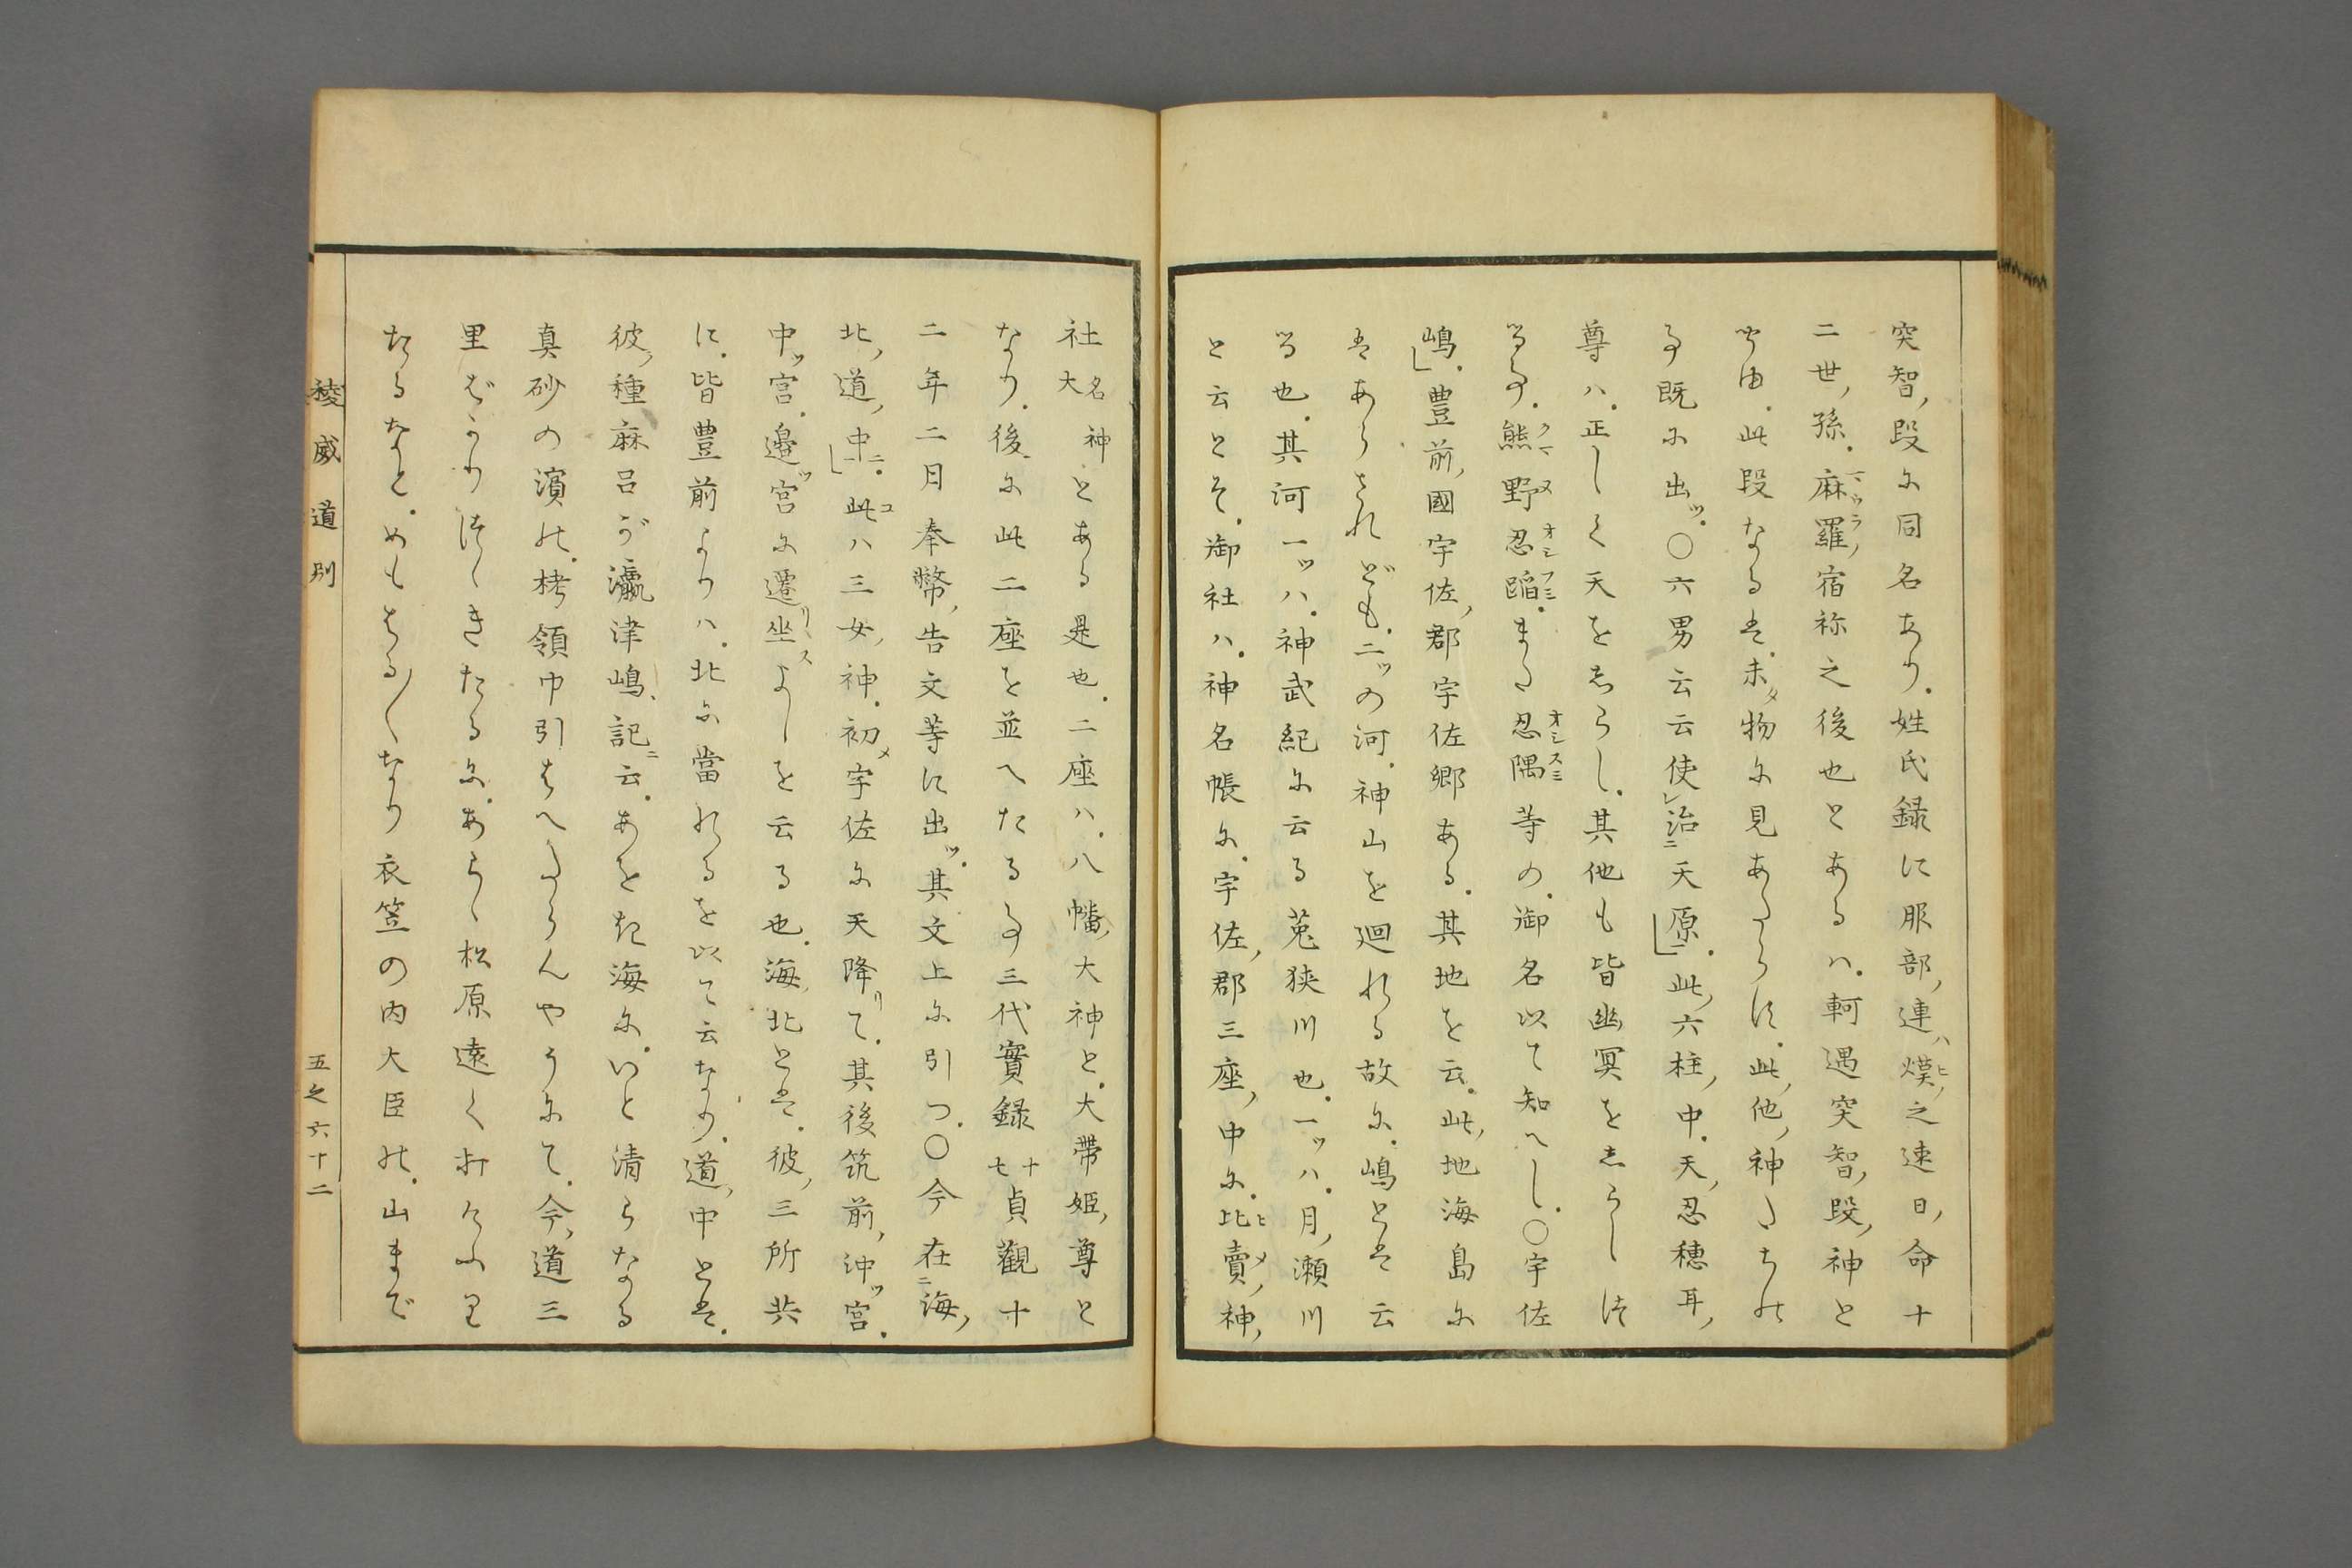 突智ノ段に同名あり。姓氏録に服部ノ連ハ。熯ヒノ之速日ノ命十
二世ノ孫。麻羅マウラノ宿祢之後也とあるハ。軻遇突智ノ段ノ神と
此段なるは。未タ物に見あたらす。此ノ他ノ神たちの
事既に出ツ。〇六男云云使レ治ニ天原一。此ノ六柱ノ中。天ノ忍穂耳ノ
尊ハ。正しく天をしらし。其他も皆幽冥をしらしけ
る事。熊クマ野ヌ忍オシ蹈フミ。また忍オシ隅スミ等の。御名以て知へし。〇宇佐
嶋。豊前ノ國宇佐ノ郡宇佐郷ある。其地を云。此ノ地海島に
はあらされども。二ツの河。神山を廻れる故に。嶋とは云
る也。其河一ツハ。神武紀に云る菟狭川也。一ツハ。月ノ瀬川
と云とそ。御社ハ。神名帳に。宇佐ノ郡三座ノ中に。比ヒ賣メノ神ノ
社名神大とある是也。二座ハ。八幡ノ大神と。大帯姫ノ尊と
なり。後に此二座を並へたる事三代實録十七貞觀十
二年二月奉幣ノ告文等に出ツ。其文上に引つ。〇今在ニ海ノ
北ノ道ノ中ニ一。此コハ三女ノ神。初メ宇佐に天降リて。其後筑前ノ沖ツ宮。
中ツ宮。邊ツ宮に遷リ坐スよしを云る也。海ノ北とは。彼ノ三所共
に。皆豊前よりハ。北に當れるを以て云なり。道ノ中とは。
彼ノ種麻呂が瀛津嶋ノ記ニ云。あをき海に。いと清らなる
真砂の濱の。栲領巾引はへたらんやうにて。今ノ道三
里ばかりつゞきたるに。あらゝ松原遠く打
たるなと。めもはる〱なり衣笠の内大臣の。山まで
稜威道別
五之六十二